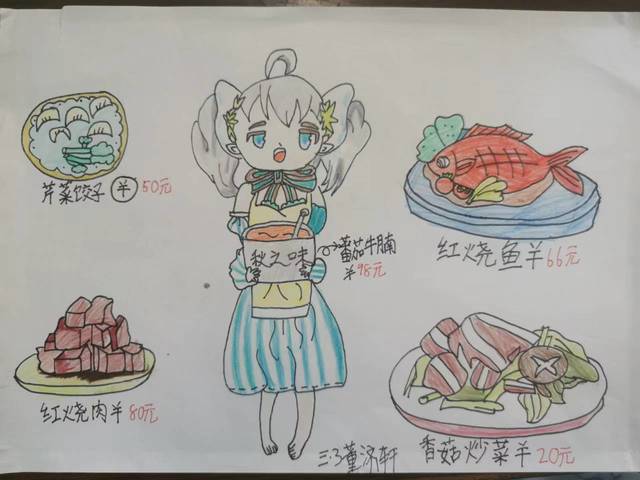 芹菜饺子 ¥ 50元
秋之味
蕃茄牛腩
¥98元
红烧鱼¥66元
红烧肉¥80元
香菇炒菜¥20元
三.3董济轩